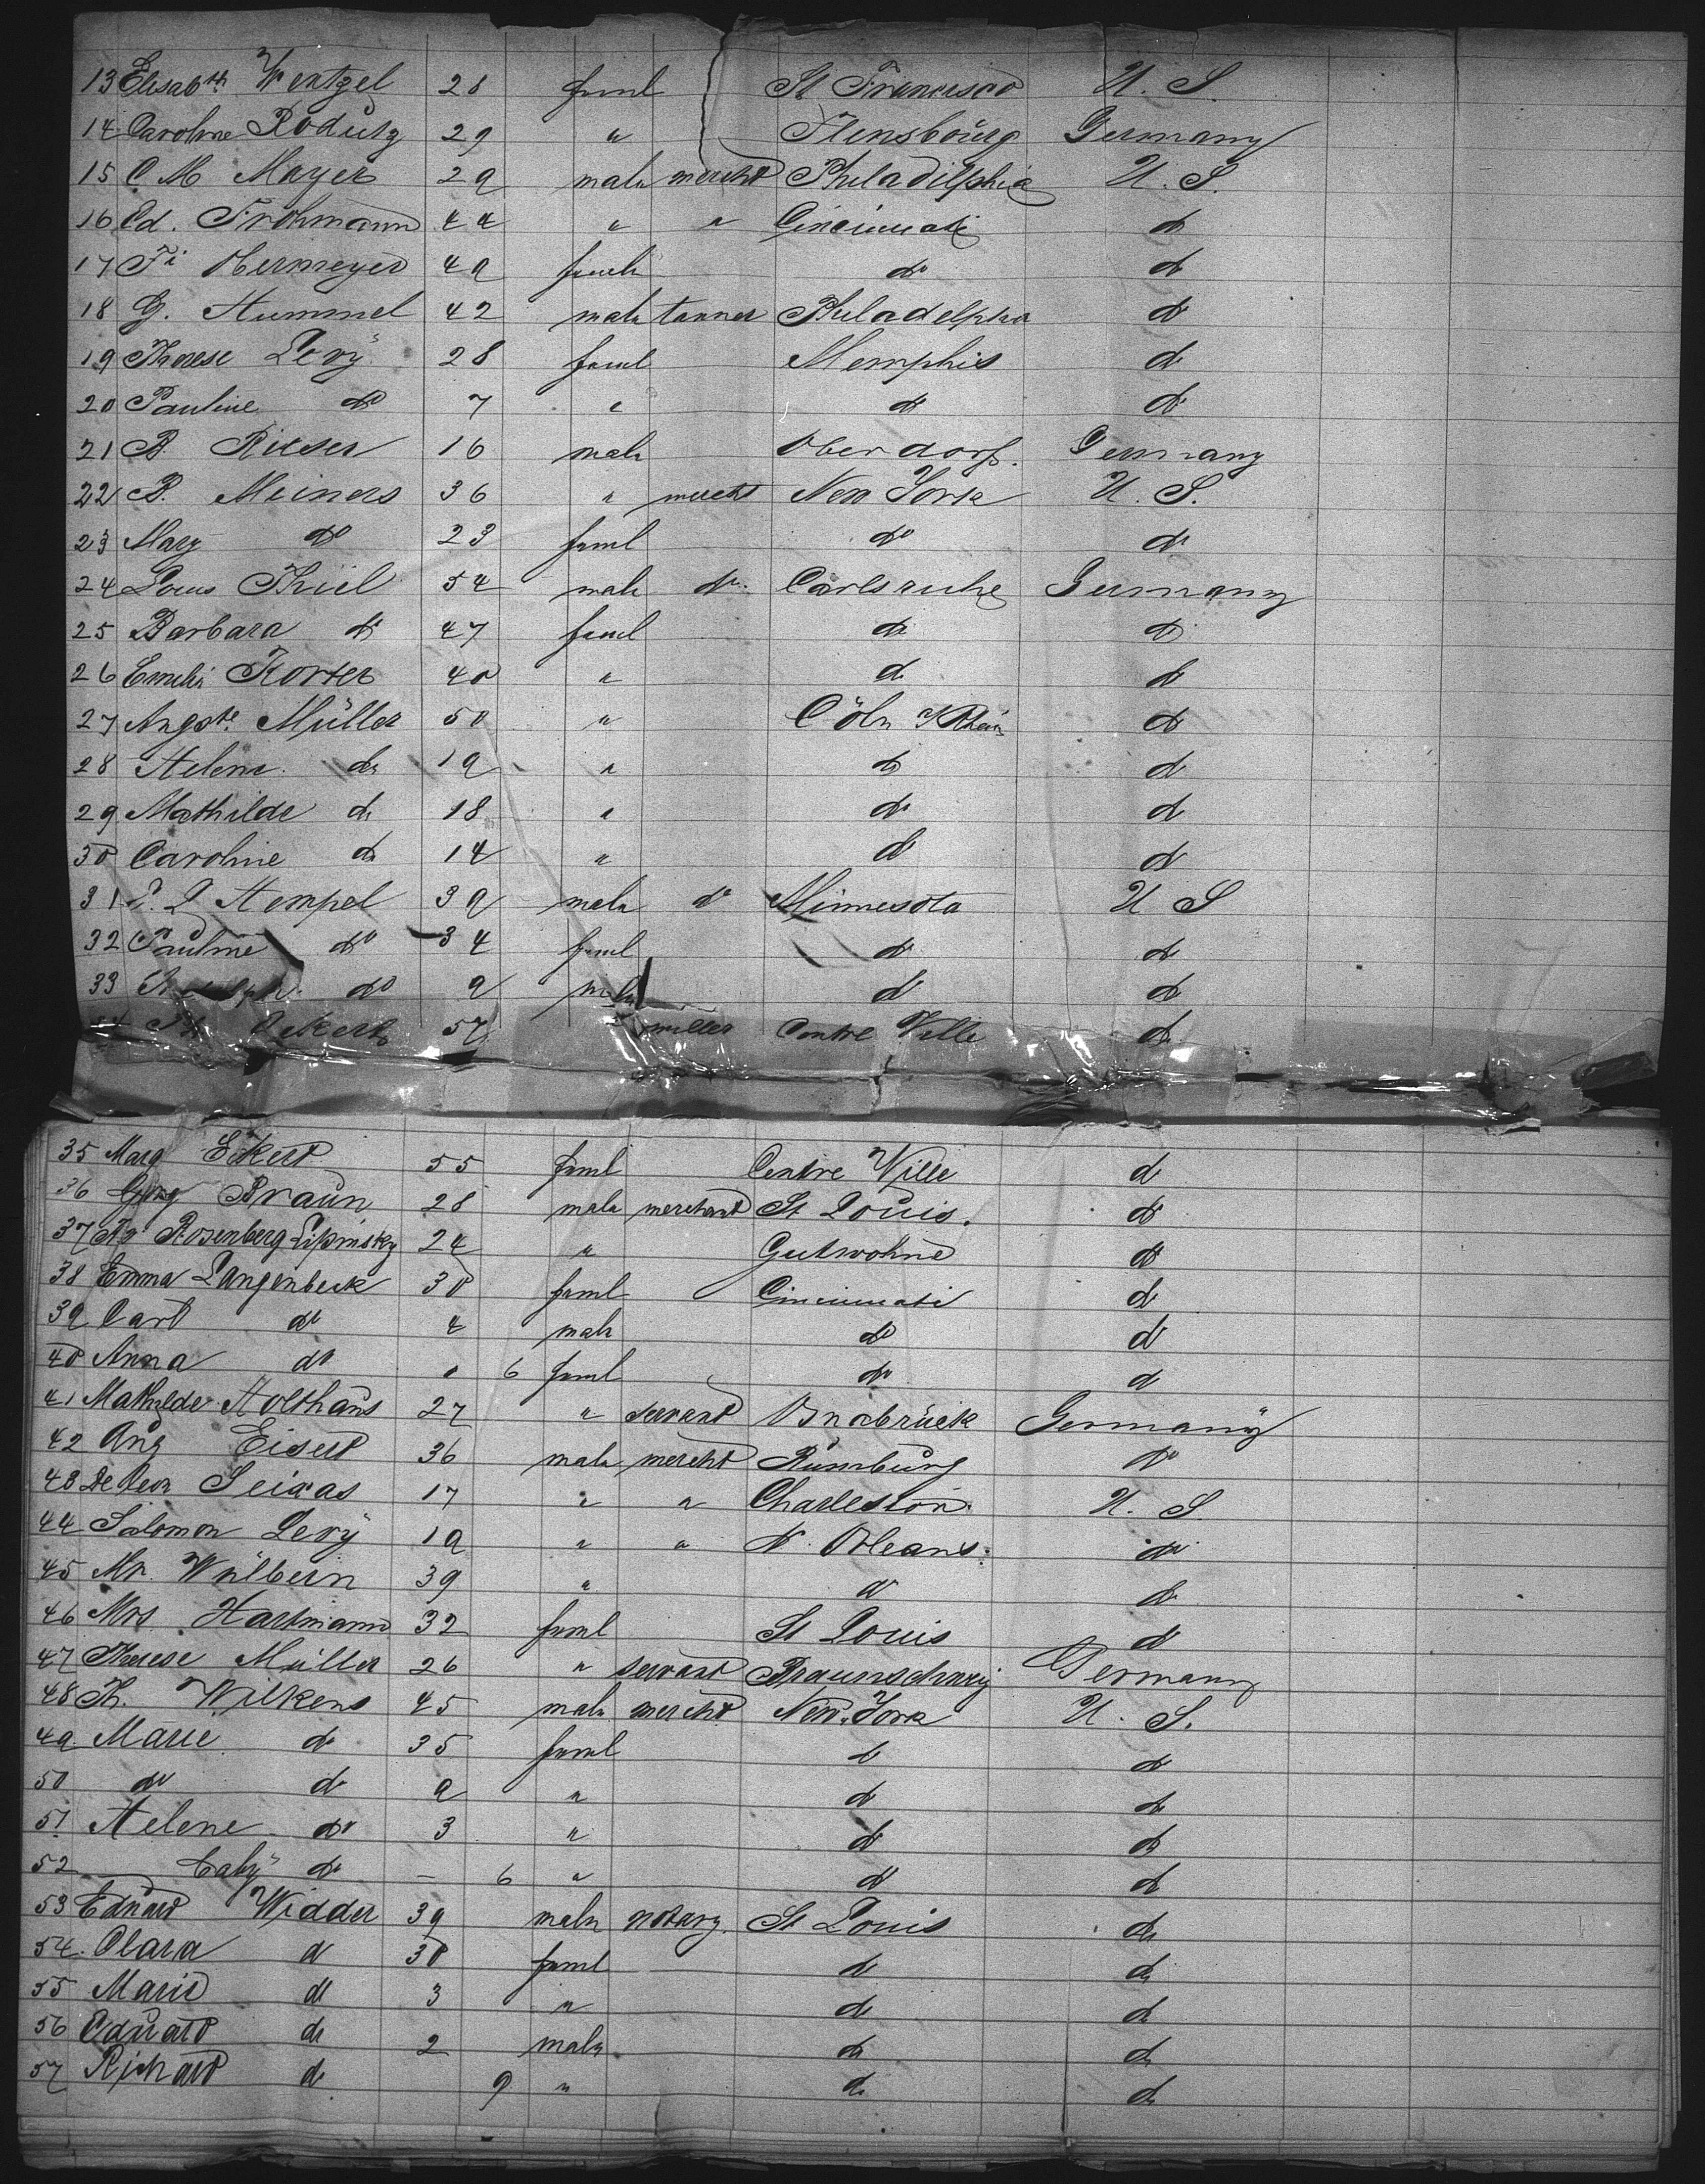 13 Elisabth Wentzel 28 feml St Francisco U. S.
14 Caroline Rodütz 29 " Flensbourg Germany
15 C M Mayer 29 male mercht Philadilphia U. S.
16 Ed. Frohmann 44 " " Cincinnati do
17 Fr Obermeyer 49 femle do do
18 G. Hummel 42 male tanner Philadelphia do
19 Therese Levy 28 feml Memphis do
20 Pauline do 7 " do do
21 B. Rieser 16 male Oberdorf. Germany
22 B. Meiners 36 " mercht New York U. S.
23 Mary do 23 feml do do
24 Louis Thiel 54 male do. Carlsruhe Germany
25 Barbara do 47 feml do do
26 Emilie Korter 40 " do do
27 Augste Müller 50 " Cöln / Rhein do
28 Helene do 19 " do do
29 Mathilde do 18 " do do
30 Caroline do 14 " do do
31 Hempel 39 male do Minnesota U S
32 Pauline do 34 feml do do
33 do 9 male do do
34 Eckert 57 " miller Centre Ville do
35 Marg Eckert 55 feml Centre Wille do
36 Georg Braun 28 male merchant St Louis. do
37 Rosenberg Lipinsky 24 " Gutwohne do
38 Emma Langenbeck 30 feml Cincinnati do
39 Carl do 4 male do do
40 Anna do " 6 feml do do
41 Mathilde Holthaus 27 " servant Osnabrück Germany
42 Aug Eisert 36 male mercht Rumburg do
43 De Leon Seixas 17 " " Charleston. U. S.
44 Salomon Levy 19 " " N. Orleans. do
45 Mr. Wülbern 39 " do do
46 Mrs Hartmann 32 feml St Louis do
47 Therese Müller 26 " servant Braunschweig Germany
48 Th. Wilkens 45 male mercht New York U. S.
49 Marie do 35 feml do do
50 do do 9 " do do
51 Helene do 3 " do do
52 baby do — 6 " do do
53 Eduard Widder 39 male notary. St Louis do
54. Clara do 30 feml do do
55 Marie do 3 " do do
56 Eduard do 2 male do do
57 Richard do 9 " do do